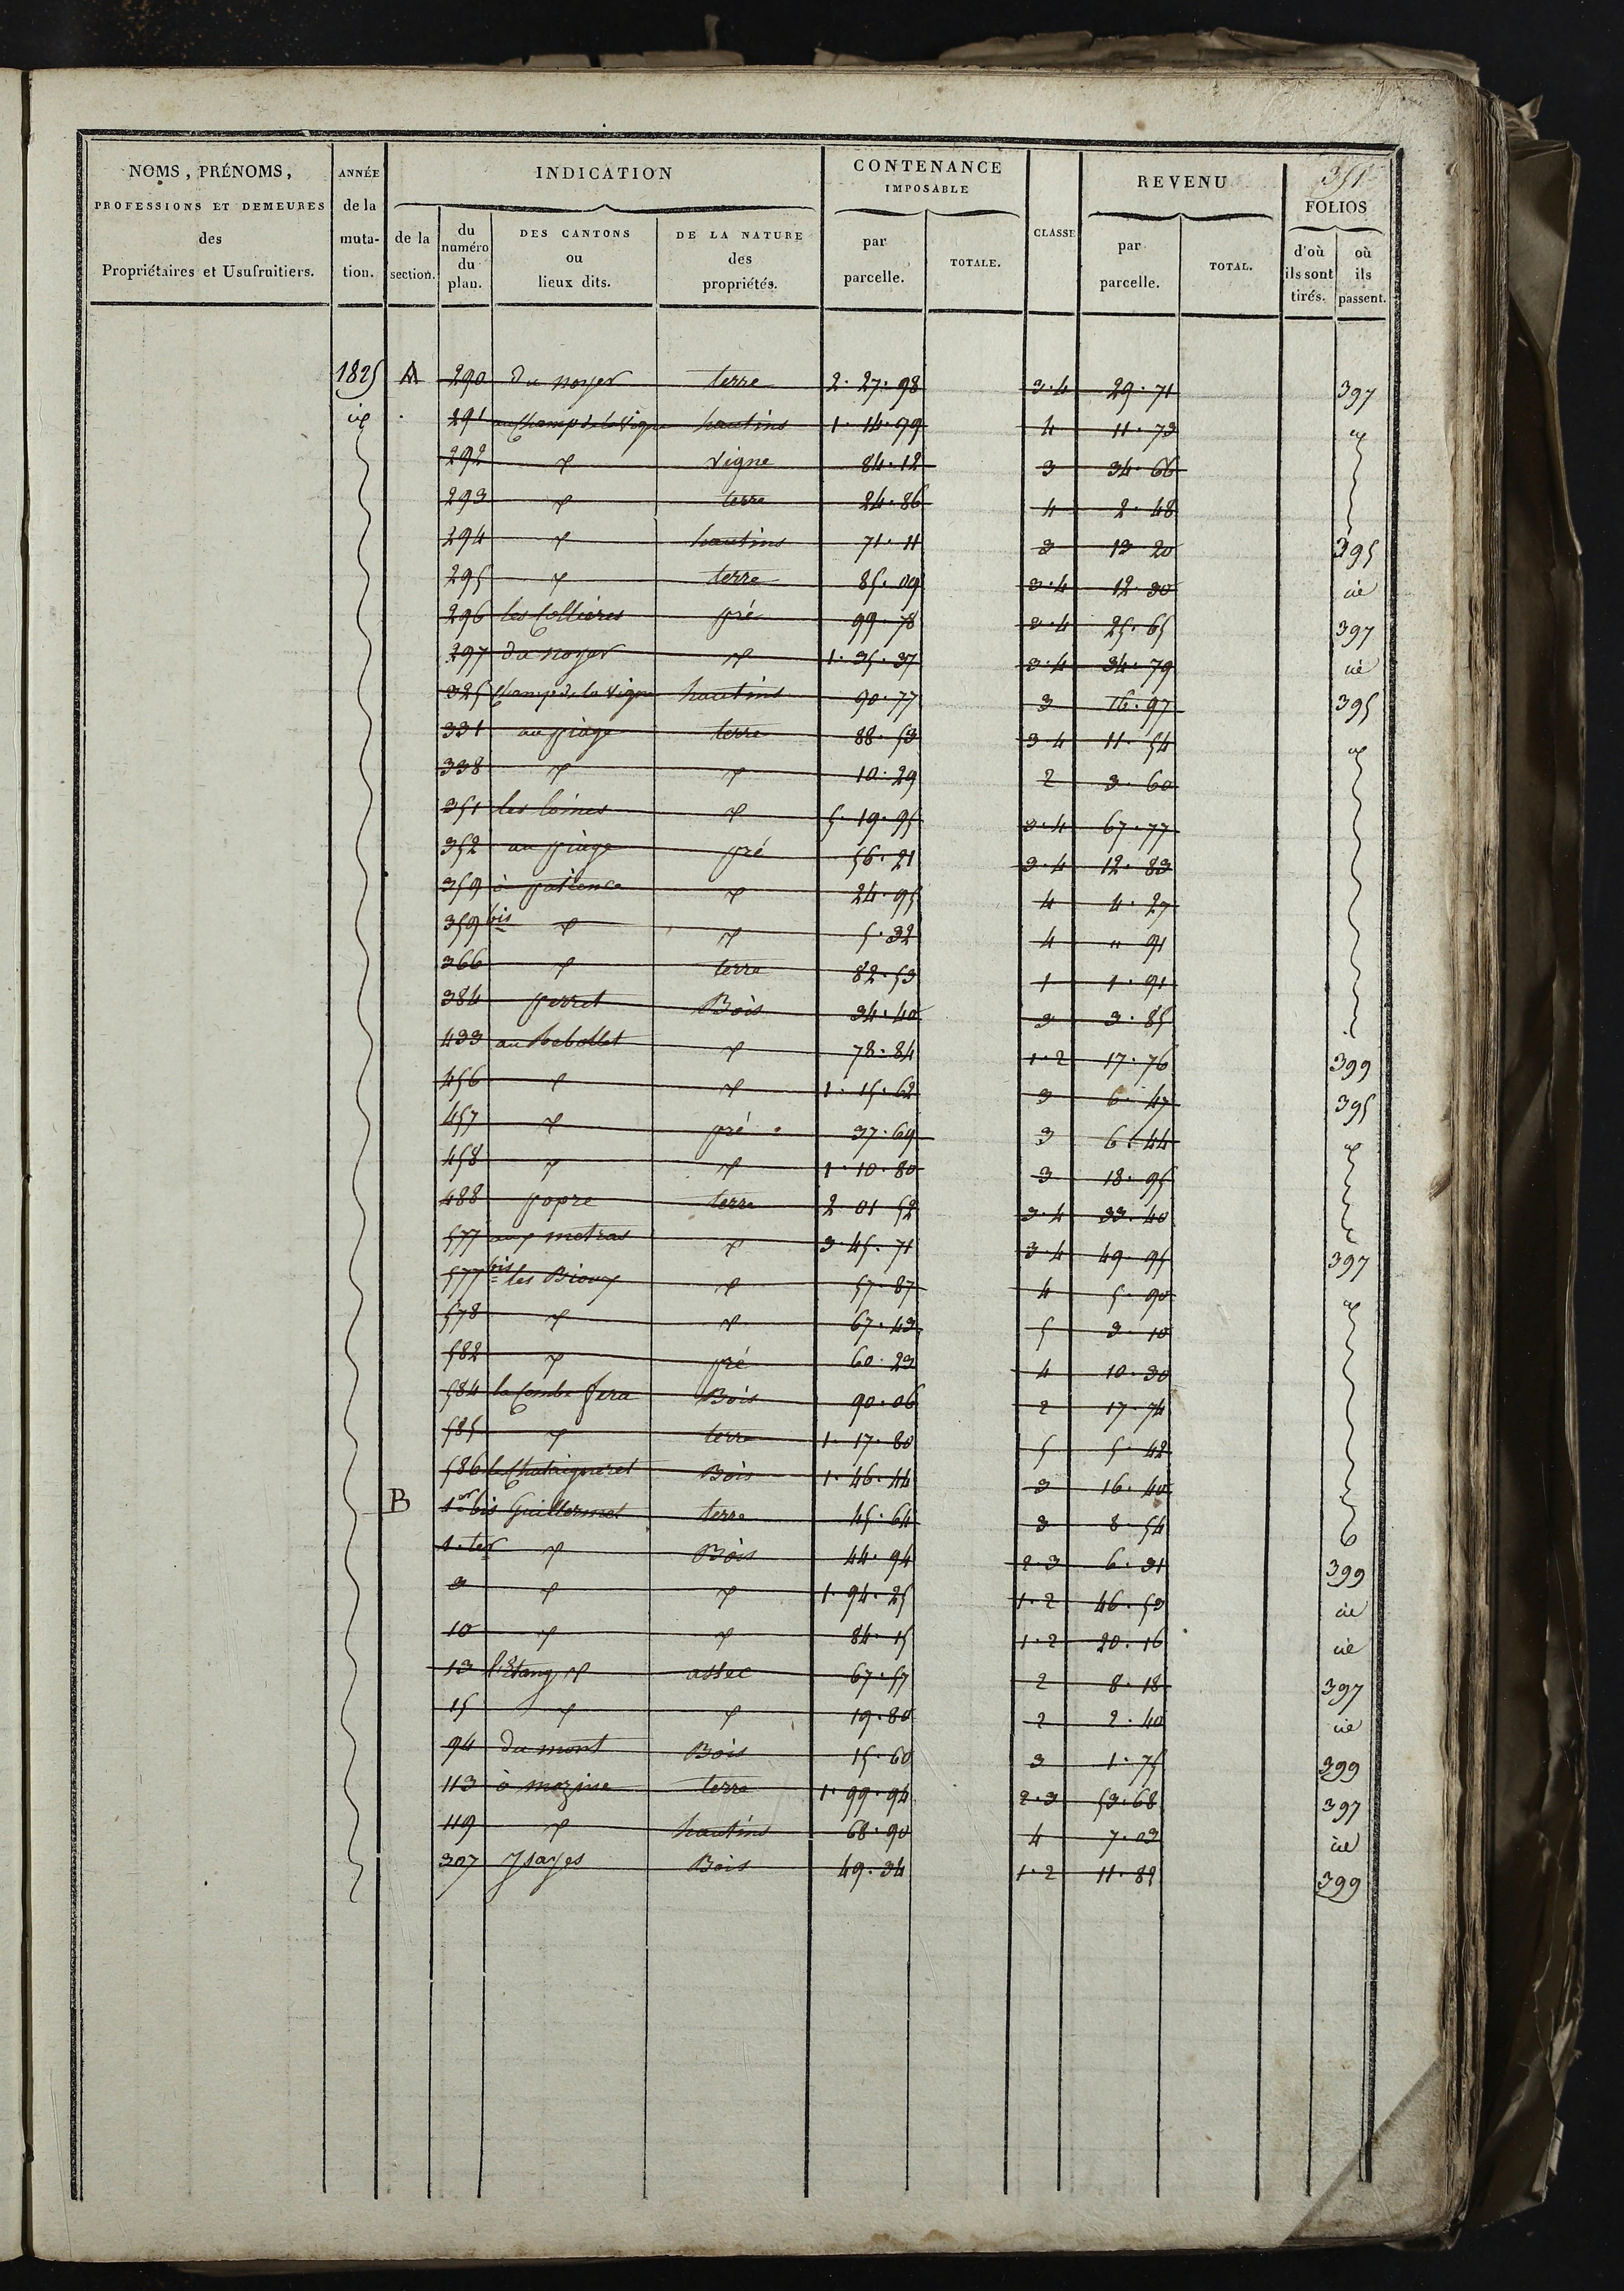 351
NOMS, PRÉNOMS, PROFESSIONS ET DEMEURES des Propriétaires et Usufruitiers. ANNÉE de la mutation. INDICATION de la section. du numéro du plan. DES CANTONS ou lieux dits. DE LA NATURE des propriétés. CONTENANCE IMPOSABLE par parcelle. TOTALE. CLASSE REVENU par parcelle. TOTAL. FOLIOS d'où ils sont tirés. où ils passent.
1825 A 290 Du noyer terre 2. 27. 98 3. 4 29. 71 397
id 291 au Champ de la Vigne hautins 1. 14. 79 4 11. 73 id
292 id Vigne 84. 12 3 34. 66
293 id terre 24. 86 4 2. 48
294 id hautins 71. 11 3 13 20 395
295 id terre 85. 09 3. 4 12. 30 id
296 les Collières pré 99. 78 3. 4 25. 65 397
297 du noyer id 1. 35. 37 3. 4 34. 79 id
325 Champ de la Vigne hautins 90. 77 3 16. 97 395
331 au piage terre 88. 53 3. 4 11. 54 id
338 id id 10. 29 2 3. 60
351 les loines id 5. 19. 95 3. 4 67. 77
352 au piage pré 56. 21 3. 4 12. 83
359 à patience id 24. 95 4 4. 27
359 bis id id 5. 32 4 " 91
366 id terre 82. 53 1 1. 91
384 perret Bois 34. 40 3 3. 85
433 au Rebollet id 78. 84 1. 2 17. 76 399
456 id id 1. 15. 62 3 6. 47 395
457 id pré 37. 69 3 6. 44 id
458 id id 1. 10. 80 3 18. 95
488 popre terre 2 01 52 3. 4 33. 40
577 aux metras id 3. 45. 71 3. 4 49. 95 397
577 bis les Bioux id 57. 87 4 5. 90 id
578 id id 67. 43 5 3. 10
582 id pré 60. 23 4 10. 30
584 la Combe fera Bois 90. 06 2 17. 74
585 id terre 1. 17. 80 5 5. 42
586 le Chataigneret Bois 1. 46. 44 3 16. 40
B 1er bis Guillermet terre 45. 64 3 8. 54
1. ter id Bois 44. 94 2. 3 6. 31 399
3 id id 1. 94. 25 1. 2 46. 53 id
10 id id 84. 15 1. 2 20. 16 id
13 l'Etang id assec 67. 57 2 8. 18 397
15 id id 19. 80 2 2. 40 id
94 du mont Bois 15. 60 3 1. 75 399
113 à mozine terre 1. 99. 94 2. 3 53. 68 397
119 id hautins 68. 90 4 7. 03 id
307 Bois 49. 34 1. 2 11. 82 399